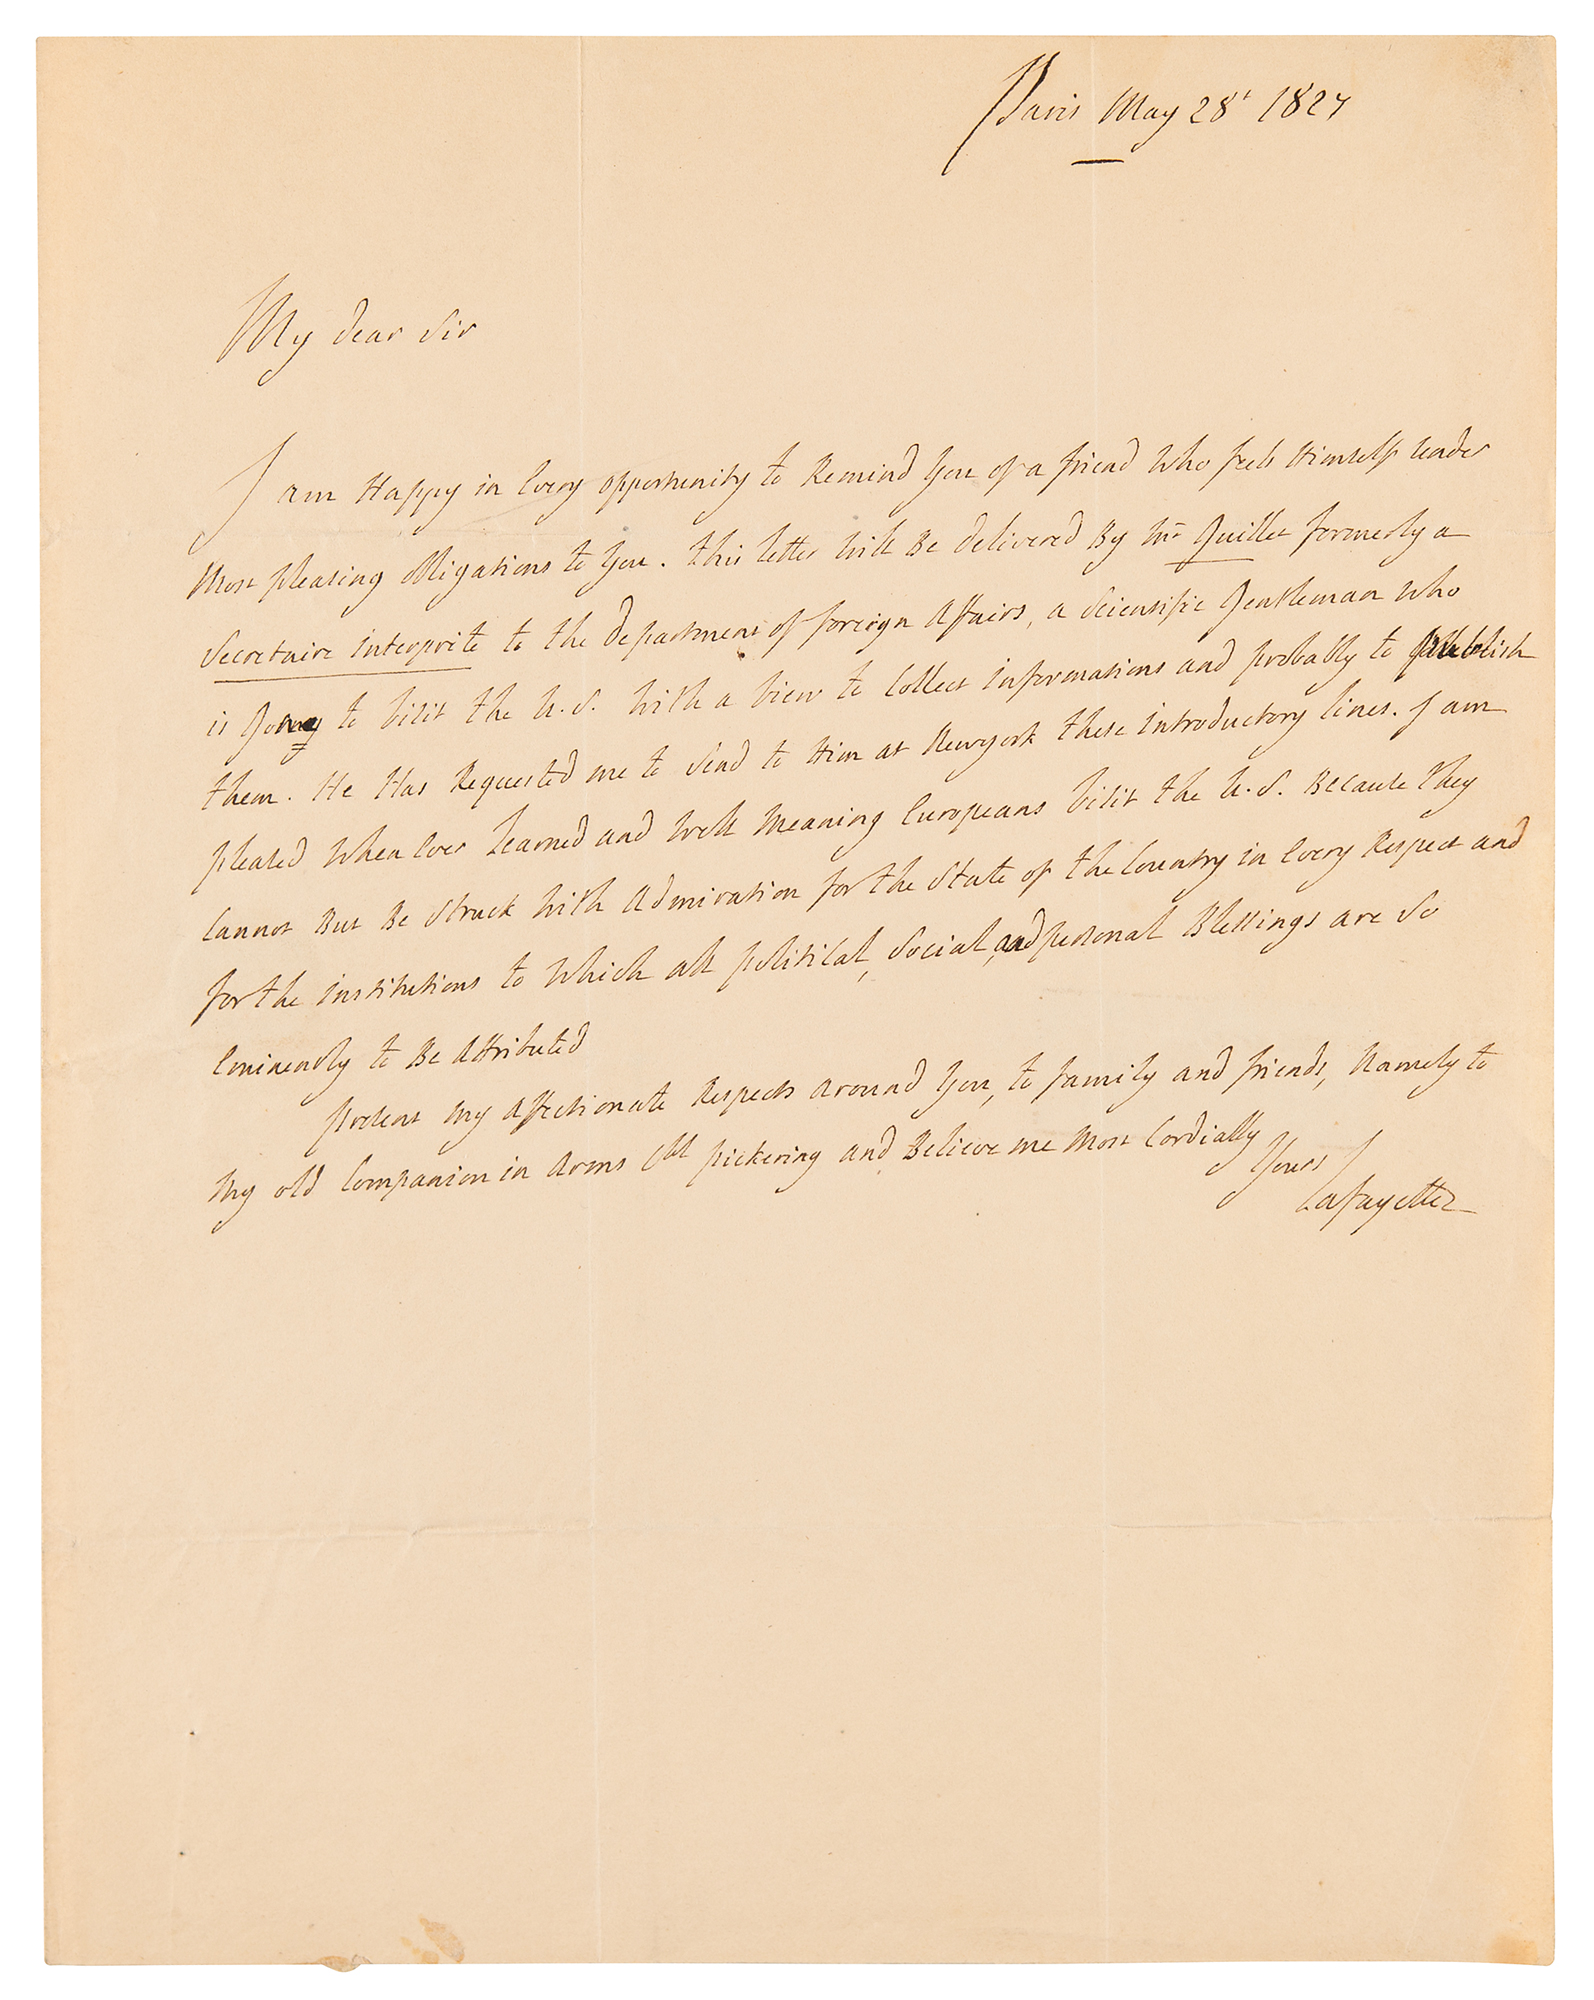 Paris May 28t 1827
My dear Sir
I am Happy in Every opportunity to Remind You of a friend Who feels Himself Under
Most pleasing obligations to You. This letter Will Be delivered By Mr Quillet formerly a
Secretaire interprête to the department of foreign Affairs, a Scientific Gentleman who
is Going to Visit the U.S. With a View to Collect informations and probably to publish
them. He Has Requested me to Send to Him at Newyork these introductory lines. I am
pleased When Ever Learned and Well Meaning Europeans Visit the U.S. Because They
Cannot But Be Struck With Admiration for the State of the Country in Every Respect and
for the institutions to Which all political, Social, and personal Blessings are So
Eminently to Be Attributed
present my Affectionate Respects Around You, to family and friends, Namely to
My old Companion in Arms Cll pickering and Believe me Most Cordially
Yours
Lafayette